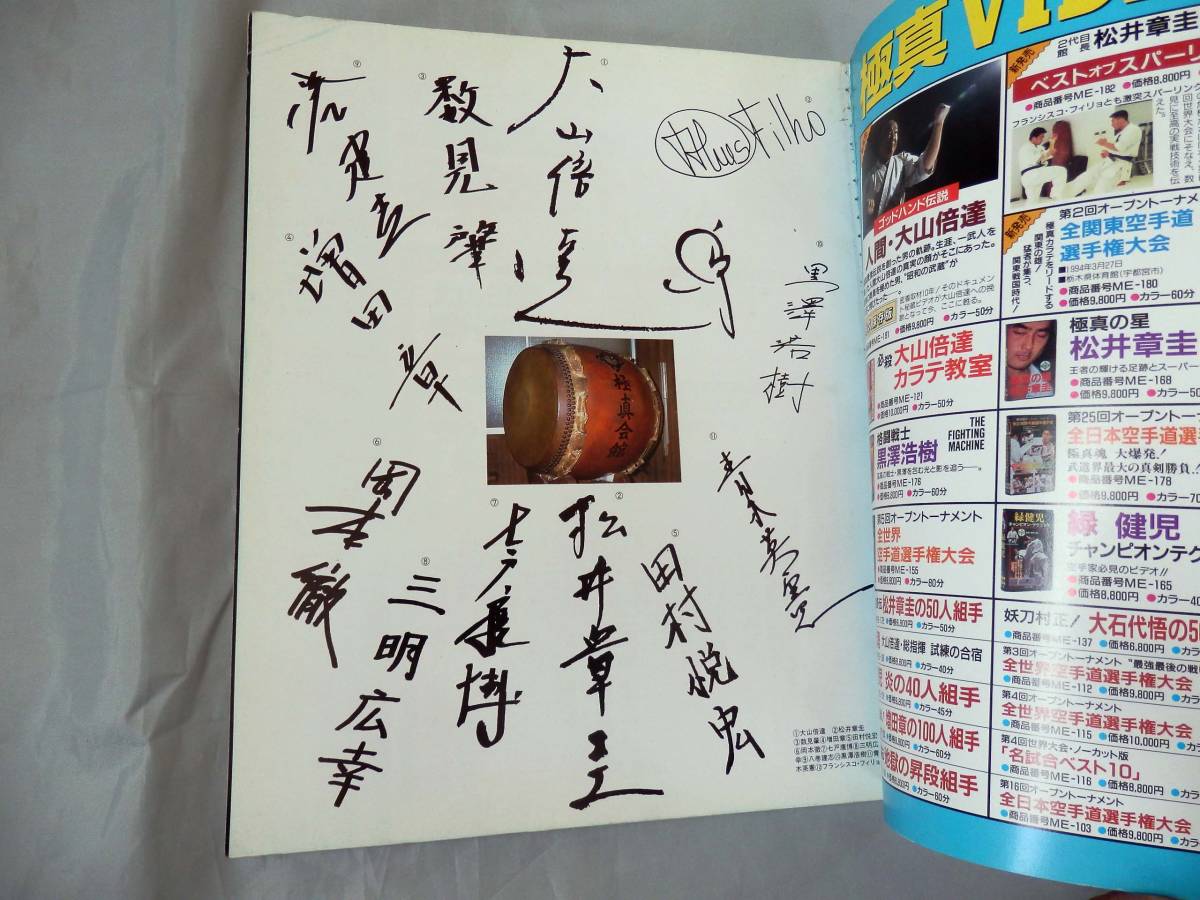 ①
大山倍達
③
数見肇
⑨
④
増田章
⑫
Filho
⑩
黒澤浩樹
極真会館
⑥
岡本徹
⑧
三明広幸
⑦
七戸康博
②
松井章圭
⑤
田村悦宏
⑪
青木英憲
①大山倍達 ②松井章圭
③数見肇④増田章⑤田村悦宏
⑥岡本徹⑦七戸康博⑧三明広
幸⑨八巻建志⑩黒澤浩樹⑪青
木英憲⑫フランシスコ・フィリョ
極真VID
ゴッドハンド伝説
人間・大山倍達
を創った男の軌跡。生涯、一武人を
●価格9,800円 ●カラー50分
必殺 大山倍達
カラテ教室
●商品番号ME-121
●価格10,000円 ●カラー50分
格闘戦士
黒澤浩樹
THE
FIGHTING
MACHINE
●商品番号ME-176
●価格9,800円 ●カラー60分
第5回オープントーナメント
全世界
空手道選手権大会
●商品番号ME-155
●価格9,800円 ●カラー80分
松井章圭の50人組手
●カラー50分
大山倍達・総指揮 試練の合宿
●カラー40分
炎の40人組手
●カラー45分
増田章の100人組手
●カラー60分
地獄の昇段組手
●カラー60分
新発売
2代目
館長
松井章圭
ベストオブスパーリ
●商品番号ME-182 ●価格8,800円
フランシスコ・フィリョとも激突スパーリング
新発売
極真カラテをリードする
関東の雄!
猛者が集う、
関東戦国時代!
第2回オープントーナメ
全関東空手道
選手権大会
■1994年3月27日
■栃木県体育館(宇都宮市)
●商品番号ME-180
●価格9,800円 ●カラー60分
極真の星
松井章圭
王者の輝ける足跡とスーパー
●商品番号ME-168
●価格9,800円 ●カラー
第25回オープントーナメ
全日本空手道選手
極真魂 大爆発!
武道界最大の真剣勝負。
●商品番号ME-178
●価格9,800円 ●カラー
緑 健児
チャンピオンテク
空手家必見のビデオ!!
●商品番号ME-165
●価格8,800円 ●カラー
妖刀村正! 大石代悟の5
●商品番号ME-137 ●価格6,800円 ●カ
第3回オープントーナメント “最強最後の戦
全世界空手道選手権大会
●商品番号ME-112 ●価格9,800円
第4回オープントーナメント
全世界空手道選手権大会
●商品番号ME-115 ●価格10,000円
第4回世界大会・ノーカット版
「名試合ベスト10」
●商品番号ME-116 ●価格8,800円
第16回オープントーナメント
全日本空手道選手権大会
●商品番号ME-103 ●価格9,800円